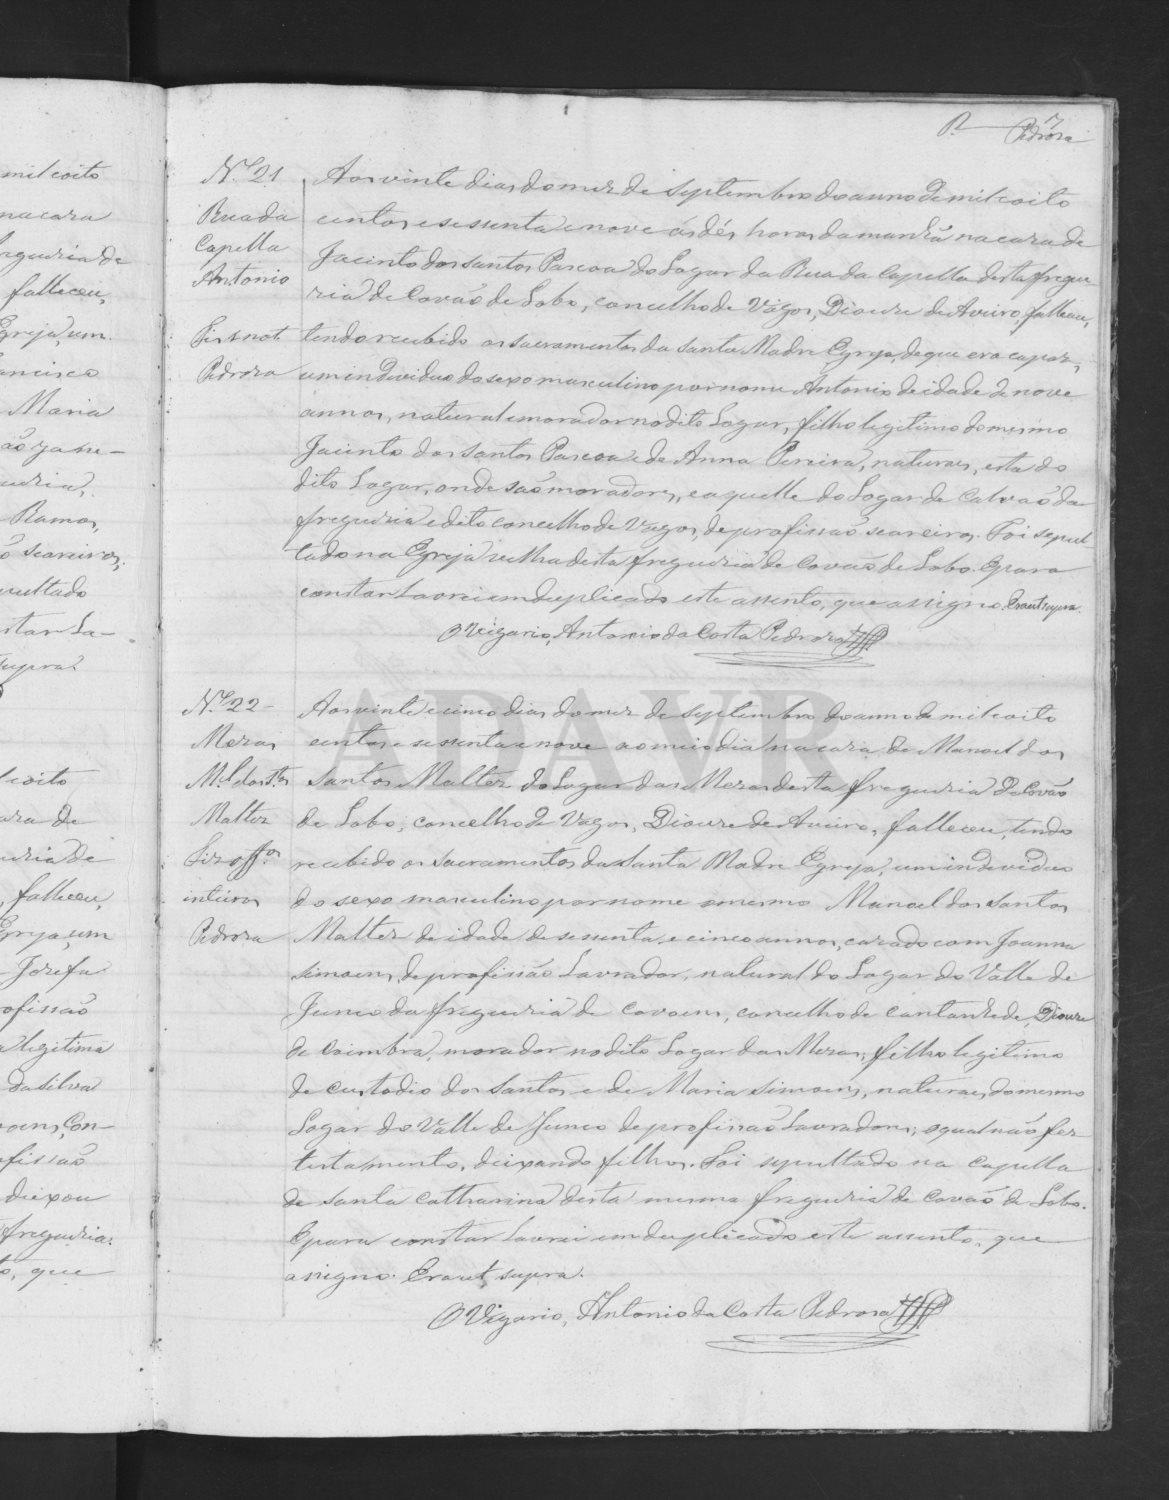 R. 7
Pedroza
N.º 21
Rua da
Capella
Antonio
Fis a not.
Pedroza
Aos vinte dias do mez de Septembro do anno de mil e oito
centos e sessenta e nove ás dés horas da manhã na caza de
Jacinto dos Santos Pascoa do Lugar da Rua da Capella desta fregue-
zia de Covão de Lobo, concelho de Vagos, Diocese de Aveiro, falleceu,
tendo recebido os sacramentos da Santa Madre Egreja, de que era capaz,
um individuo do sexo masculino por nome Antonio de idade de nove
annos, natural e morador no dito Lugar, filho legitimo do mesmo
Jacinto dos Santos Pascoa e de Anna Pereira, naturaes, esta do
dito Lugar, onde são moradores, e aquelle do Logar de Calvão da
freguezia e dito concelho de Vagos, de profissão seareiros. Foi sepul-
tado na Egreja velha desta freguezia de Covão de Lobo. E para
constar lavrei em duplicado este assento, que assigno. Era ut supra.
O Vigario, Antonio da Costa Pedroza
N.º 22
Mezas
M.el dos S.tos
Malter
Fiz os off.os
inteiros
Pedroza
Aos vinte e cinco dias do mez de Septembro do anno de mil e oito
centos e sessenta e nove ao meio dia na caza de Manoel dos
Santos Malter do Lugar das Mezas desta freguezia de Covão
de Lobo, concelho de Vagos, Diocese de Aveiro, falleceu, tendo
recebido os sacramentos da Santa Madre Egreja, um individuo
do sexo masculino por nome o mesmo Manoel dos Santos
Malter de idade de sessenta e cinco annos, cazado com Joanna
Simoens, de profissão Lavrador, natural do Lugar do Valle de
Junco da freguezia de Covoens, concelho de Cantanhede, Diocese
de Coimbra, morador no dito Lugar das Mezas, filho legitimo
de Custodio dos Santos e de Maria Simoens, naturaes do mesmo
Lugar do Valle de Junco de profissão Lavradores; o qual não fez
testamento, deixando filhos. Foi sepultado na Capella
de Santa Catharina desta mesma freguezia de Covão de Lobo.
E para constar lavrei em duplicado este assento, que
assigno. Era ut supra.
O Vigario, Antonio da Costa Pedroza
ADAVR
mil e oito
na caza
freguezia de
falleceu,
Egreja, um
Francisca
Maria
Ramos,
seareiros,
sepultado
supra.
falleceu,
Egreja, um
Josefa
profissão
legitima
da Silva
deixou
freguezia.
que